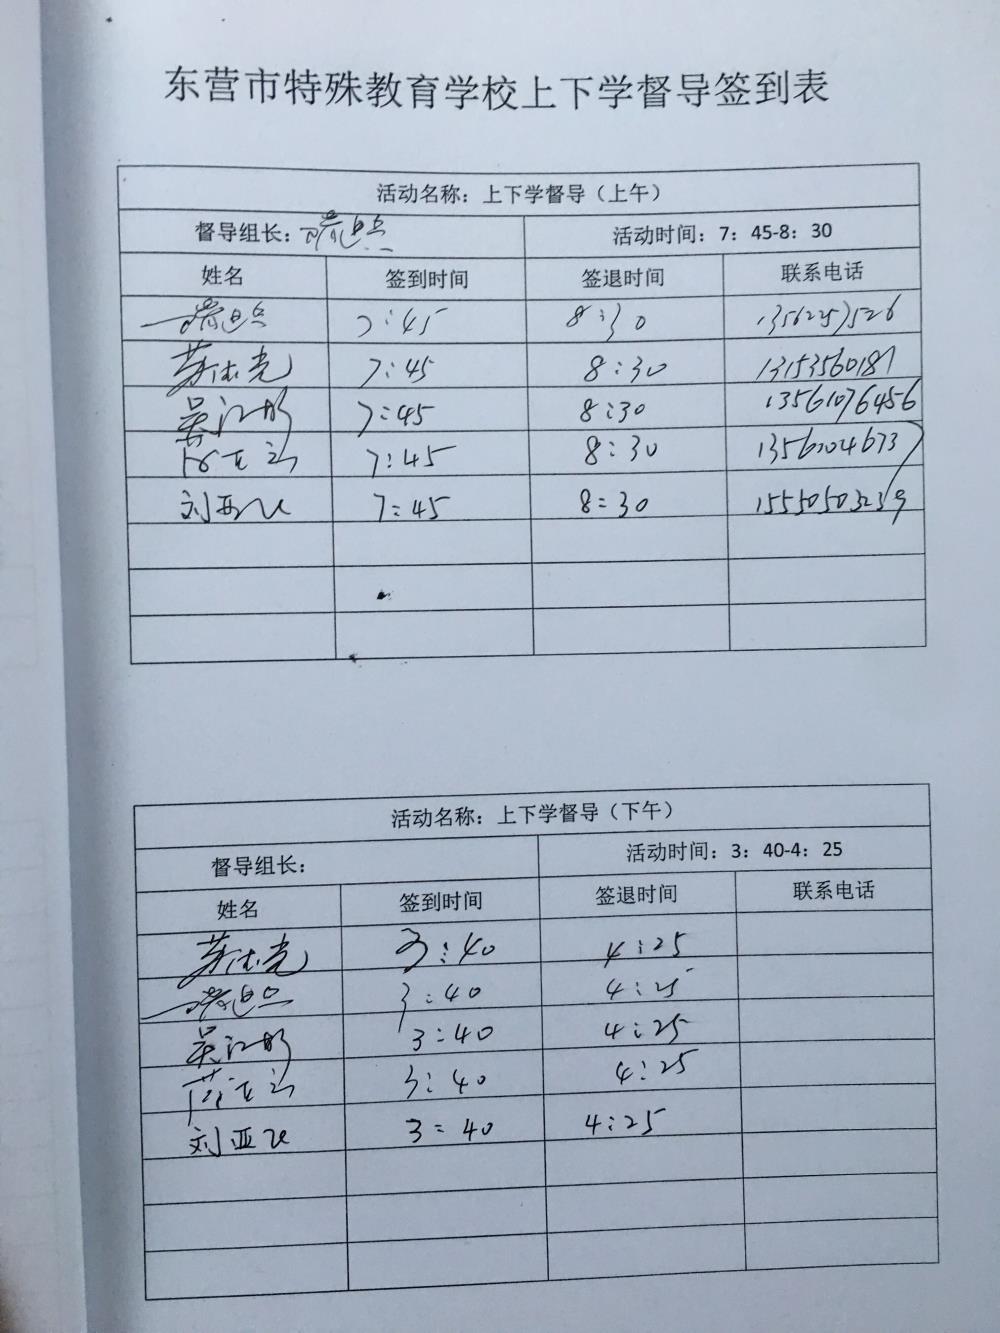 东营市特殊教育学校上下学督导签到表
活动名称：上下学督导（上午）
督导组长： 活动时间：7：45-8：30
姓名 签到时间 签退时间 联系电话
7:45 8:30 13562257526
7:45 8:30 13153560187
7:45 8:30 13561076456
7:45 8:30
刘亚飞 7:45 8:30 15550503239
活动名称：上下学督导（下午）
督导组长： 活动时间：3：40-4：25
姓名 签到时间 签退时间 联系电话
3:40 4:25
3:40 4:25
3:40 4:25
3:40 4:25
刘亚飞 3:40 4:25